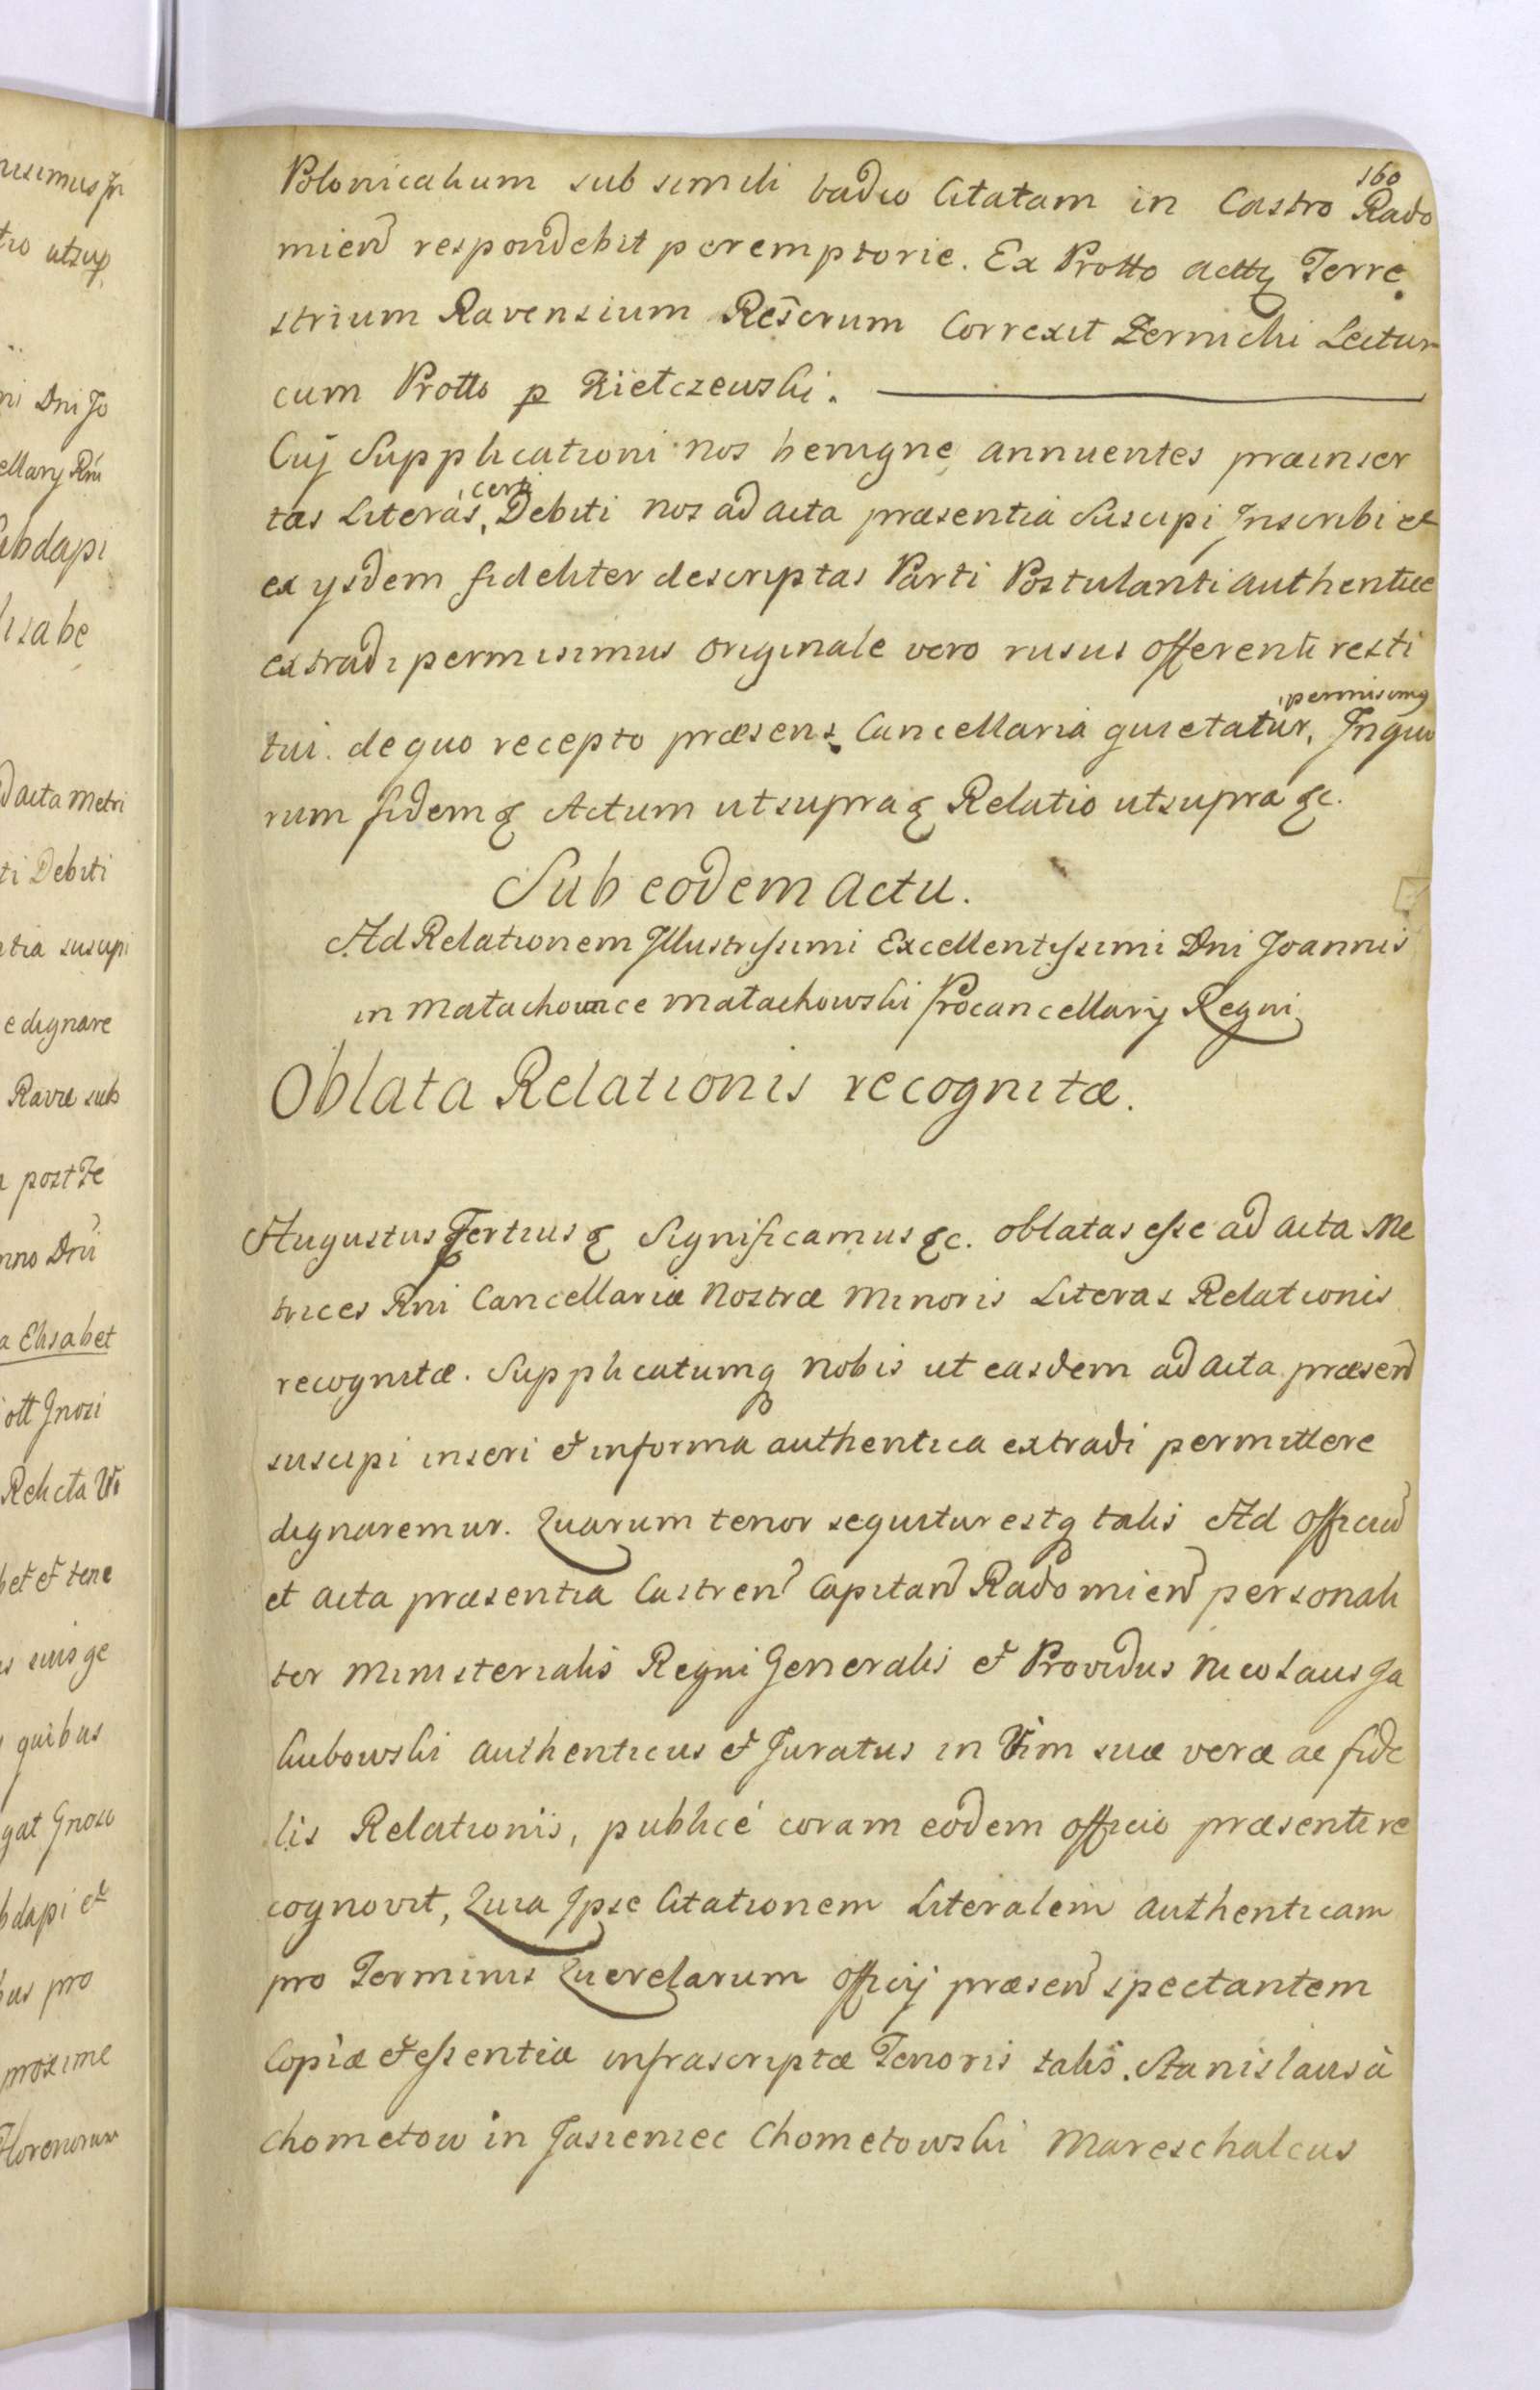 160
Polonicalium sub simili vadio Citatam in Castro Rado
mien respondebit peremptorie. Ex Protto Actq Terre
strium Ravensium Rescrum Correxit Zernicki Lectum
cum Protto p Rietczewski.
Cuj Supplicationi nos benigne annuentes præinser
tas Literas, certi Debiti nos ad acta præsentia Suscipi Inscribi et
ex ysdem fideliter descriptas Parti Postulanti authentice
extradi permisimus originale vero rusus offerenti resti
tui permisimq. de quo recepto præsens Cancellaria quietatur, In quo
rum fidem & Actum ut supra & Relatio ut supra &c.
Sub eodem Actu.
Ad Relationem Illustrissimi Excellentissimi Dni Joannis
in Małachowice Małachowski Procancellarij Regni
Oblata Relationis recognitæ.
Augustus Tertius & Significamus &c. oblatas esse ad acta Me
trices Rni Cancellariæ Nostræ Minoris Literas Relationis
recognitæ. Supplicatumq nobis ut easdem ad acta præsen
suscipi inseri et in forma authentica extradi permittere
dignaremur. Quarum tenor sequitur estq talis Ad Officiu
et acta præsentia Castren Capitan Radomien personali
ter Ministerialis Regni Generalis et Providus Nicolaus Ja
kubowski authenticus et Juratus in Vim suæ veræ ac fide
lis Relationis, publicé coram eodem officio præsenti re
cognovit, Quia Ipse Citationem Literalem authenticam
pro Terminis Querelarum officij præsen spectantem
Copiæ et essentiæ infrascriptæ Tenoris talis. Stanislaus à
Chometow in Jasieniec Chometowski Mareschalcus
nisimus In
tio utsup
ni Dni Jo
ellarij Rni
ubdapi
lisabe
d acta Metri
ti Debiti
ntia suscipi
e dignare
Ravæ sub
post Fe
nno Dni
a Elisabet
ott Gnosi
Relicta Vi
bet et tene
s suis ge
quibus
gat Gnoso
bdapi et
bus pro
proxime
Florenorum